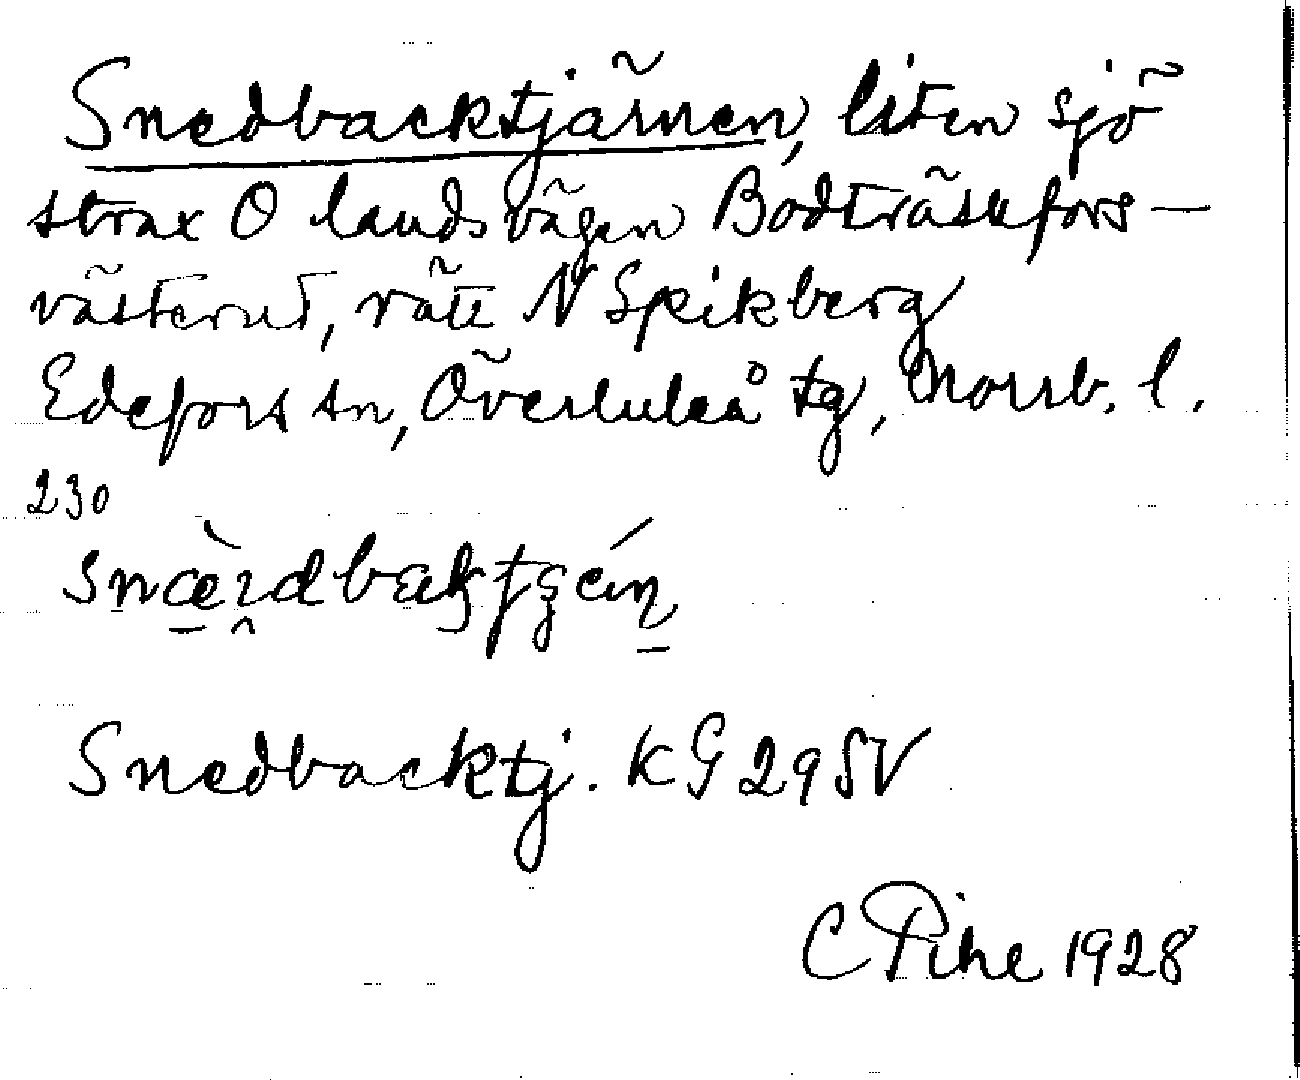 Snedbacktjärnen, liten sjö
strax O landsvägen Bodträskfors —
västerut, rätt N Spikberg
Edefors sn, Överluleå tg, Norrb. l.
230
Snedbacktj. KG 29 SV
C Pihe 1928